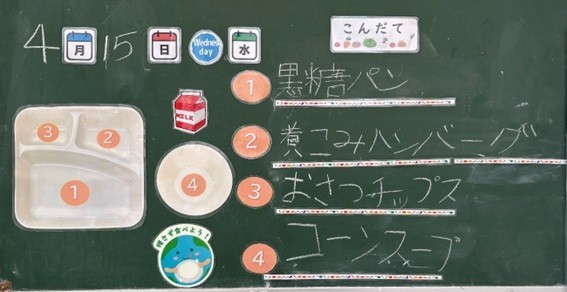 4月15日 Wednesday 水
こんだて
MILK
1 黒糖パン
2 煮こみハンバーグ
3 おさつチップス
4 コーンスープ
3 2
1
4
残さず食べよう!